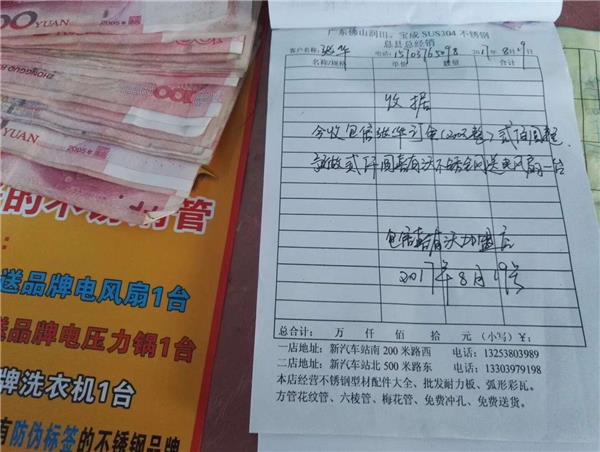 00
YUAN
100
2005年
YUAN
2005年
的不锈钢管
送品牌电风扇1台
送品牌电压力锅1台
牌洗衣机1台
有防伪标签的不锈钢品牌
广东佛山润田、宝成 SUS304 不锈钢
息县总经销
客户名称: 张华 电话: 15703765098 2017年 8月19日
名称/规格 单价 数量 合计
收据
今收包信张华订金(200元整)贰佰圆整
包信喜有沃加盟店
2017年8月19号
总合计: 万 仟 佰 拾 元 (小写) ¥:
一店地址: 新汽车站南 200 米路西 电话: 13253803989
二店地址: 新汽车站北 500 米路东 电话: 13303979198
本店经营不锈钢型材配件大全、批发耐力板、弧形彩瓦。
方管花纹管、六棱管、梅花管、免费冲孔、免费送货。